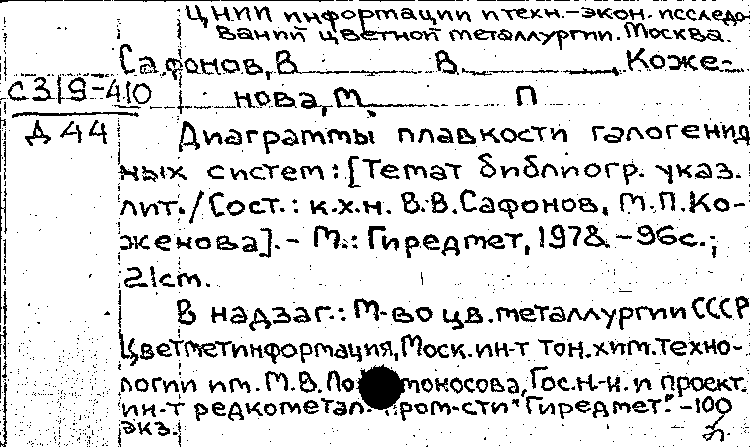 ЦНИИ информации и техн.-экон. исследо-
ваний цветной металлургии. Москва.
Сафонов, В В. , Коже-
С319-410
нова, М. П
Д 44
Диаграммы плавкости галогенид
ных систем: [Темат библиогр. указ.
лит./Сост.: к.х.н. В.В.Сафонов, М.П.Ко-
женова]. - М.: Гиредмет, 1978. - 96с.;
21см.
В надзаг.: М-во цв. металлургии СССР
Цветметинформация, Моск. ин-т тон. хим. техно-
логии им. М.В. Ло моносова, Гос. н-и. и проект.
ин-т редкометал. пром-сти "Гиредмет". - 100
экз.